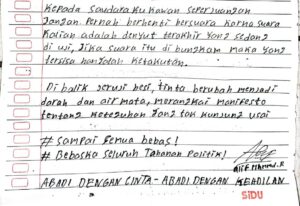 Kepada Saudara Kukawan seperjuangan
Jangan. Pernah berhenti bersuara karna suara
Kalian adalah denyut terakhir yang sedang
di uji, Jika suara itu di bungkam maka yang
tersisa hanyalah Ketakutan.
Di balik seruji besi, tinta berubah menjadi
darah dan air mata, merangkai manifesto
tentang keteguhan yang tak kunjung usai
# Sampai semua bebas!
# Bebaska seluruh Tahanan Politik!
ABADI DENGAN CINTA - ABADI DENGAN KEADILAN
SiDU